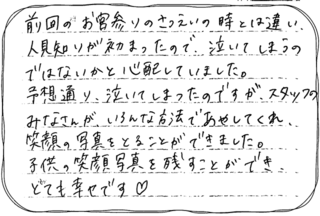 前回のお宮参りのさつえいの時とは違い、
人見知りが初まったので、泣いてしまうの
ではないかと心配していました。
予想通り、泣いてしまったのですが、スタッフの
みなさんが、いろんな方法であやしてくれ、
笑顔の写真をとることができました。
子供の笑顔写真を残すことができ、
とても幸せです♡